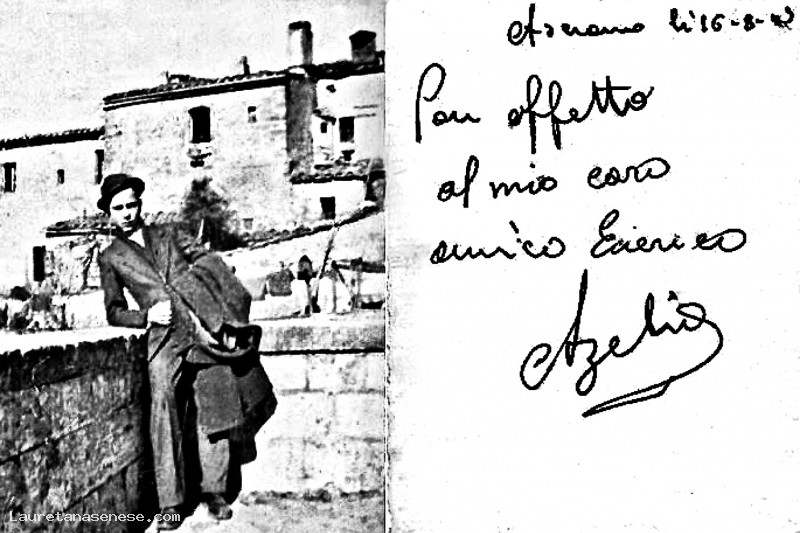 Asciano lì 16-8-42
Con affetto
al mio caro
amico Enerico
Azelio
Lauretanasenese.com